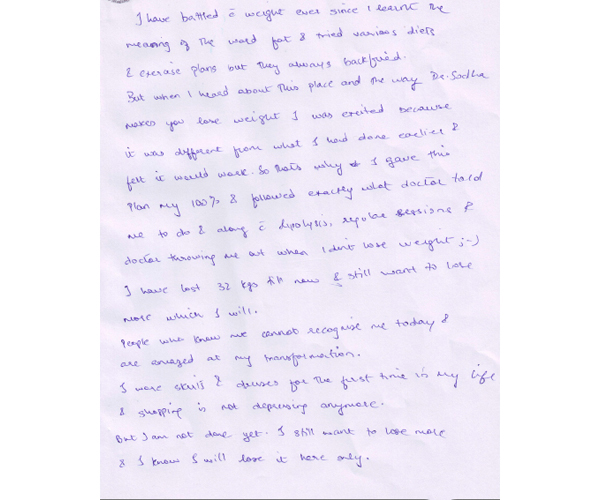 I have battled c̄ weight ever since I learnt the
meaning of the word fat & tried various diets
& exercise plans but they always backfired.
But when I heard about this place and the way Dr. Sadhu
makes you lose weight I was excited because
it was different from what I had done earlier &
felt it would work. So thats why I gave this
plan my 100% & followed exactly what doctor told
me to do & along c̄ lipolysis, regular sessions &
doctor throwing me out when I dont lose weight ;-)
I have lost 32 kgs till now & still want to lose
more which I will.
People who know me cannot recognise me today &
are amazed at my transformation.
I wore skirts & dresses for the first time in my life
& shopping is not depressing anymore.
But I am not done yet. I still want to lose more
& I know I will lose it here only.